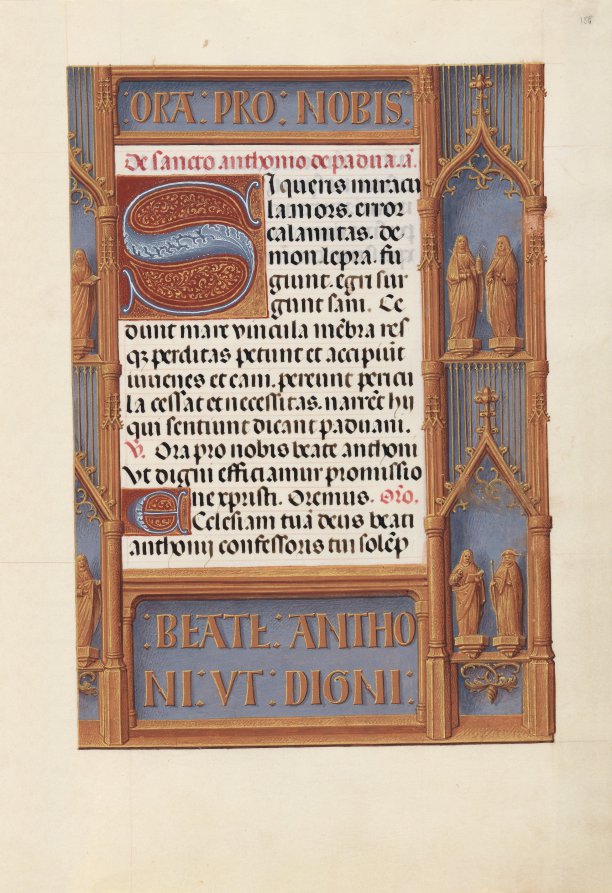 186
:ORA: PRO: NOBIS.
De sancto anthonio de padua. a.
SI queris miracu
la mors. error
calamitas. de
mon lepra. fu
giunt. egri sur
gunt sani. Ce
dunt mare vincula mēbra res
qz perditas petunt et accipiūt
iuuenes et cani. pereunt pericu
la cessat et necessitas. narrēt hij
qui sentiunt dicant paduani.
V. Ora pro nobis beate anthoni
Vt digni efficiamur promissio
ne xpristi. Oremus. Oro.
ECclesiam tuā deus beati
anthonij confessoris tui solēp
:BEATE: ANTHO
NI: VT: DIGNI: